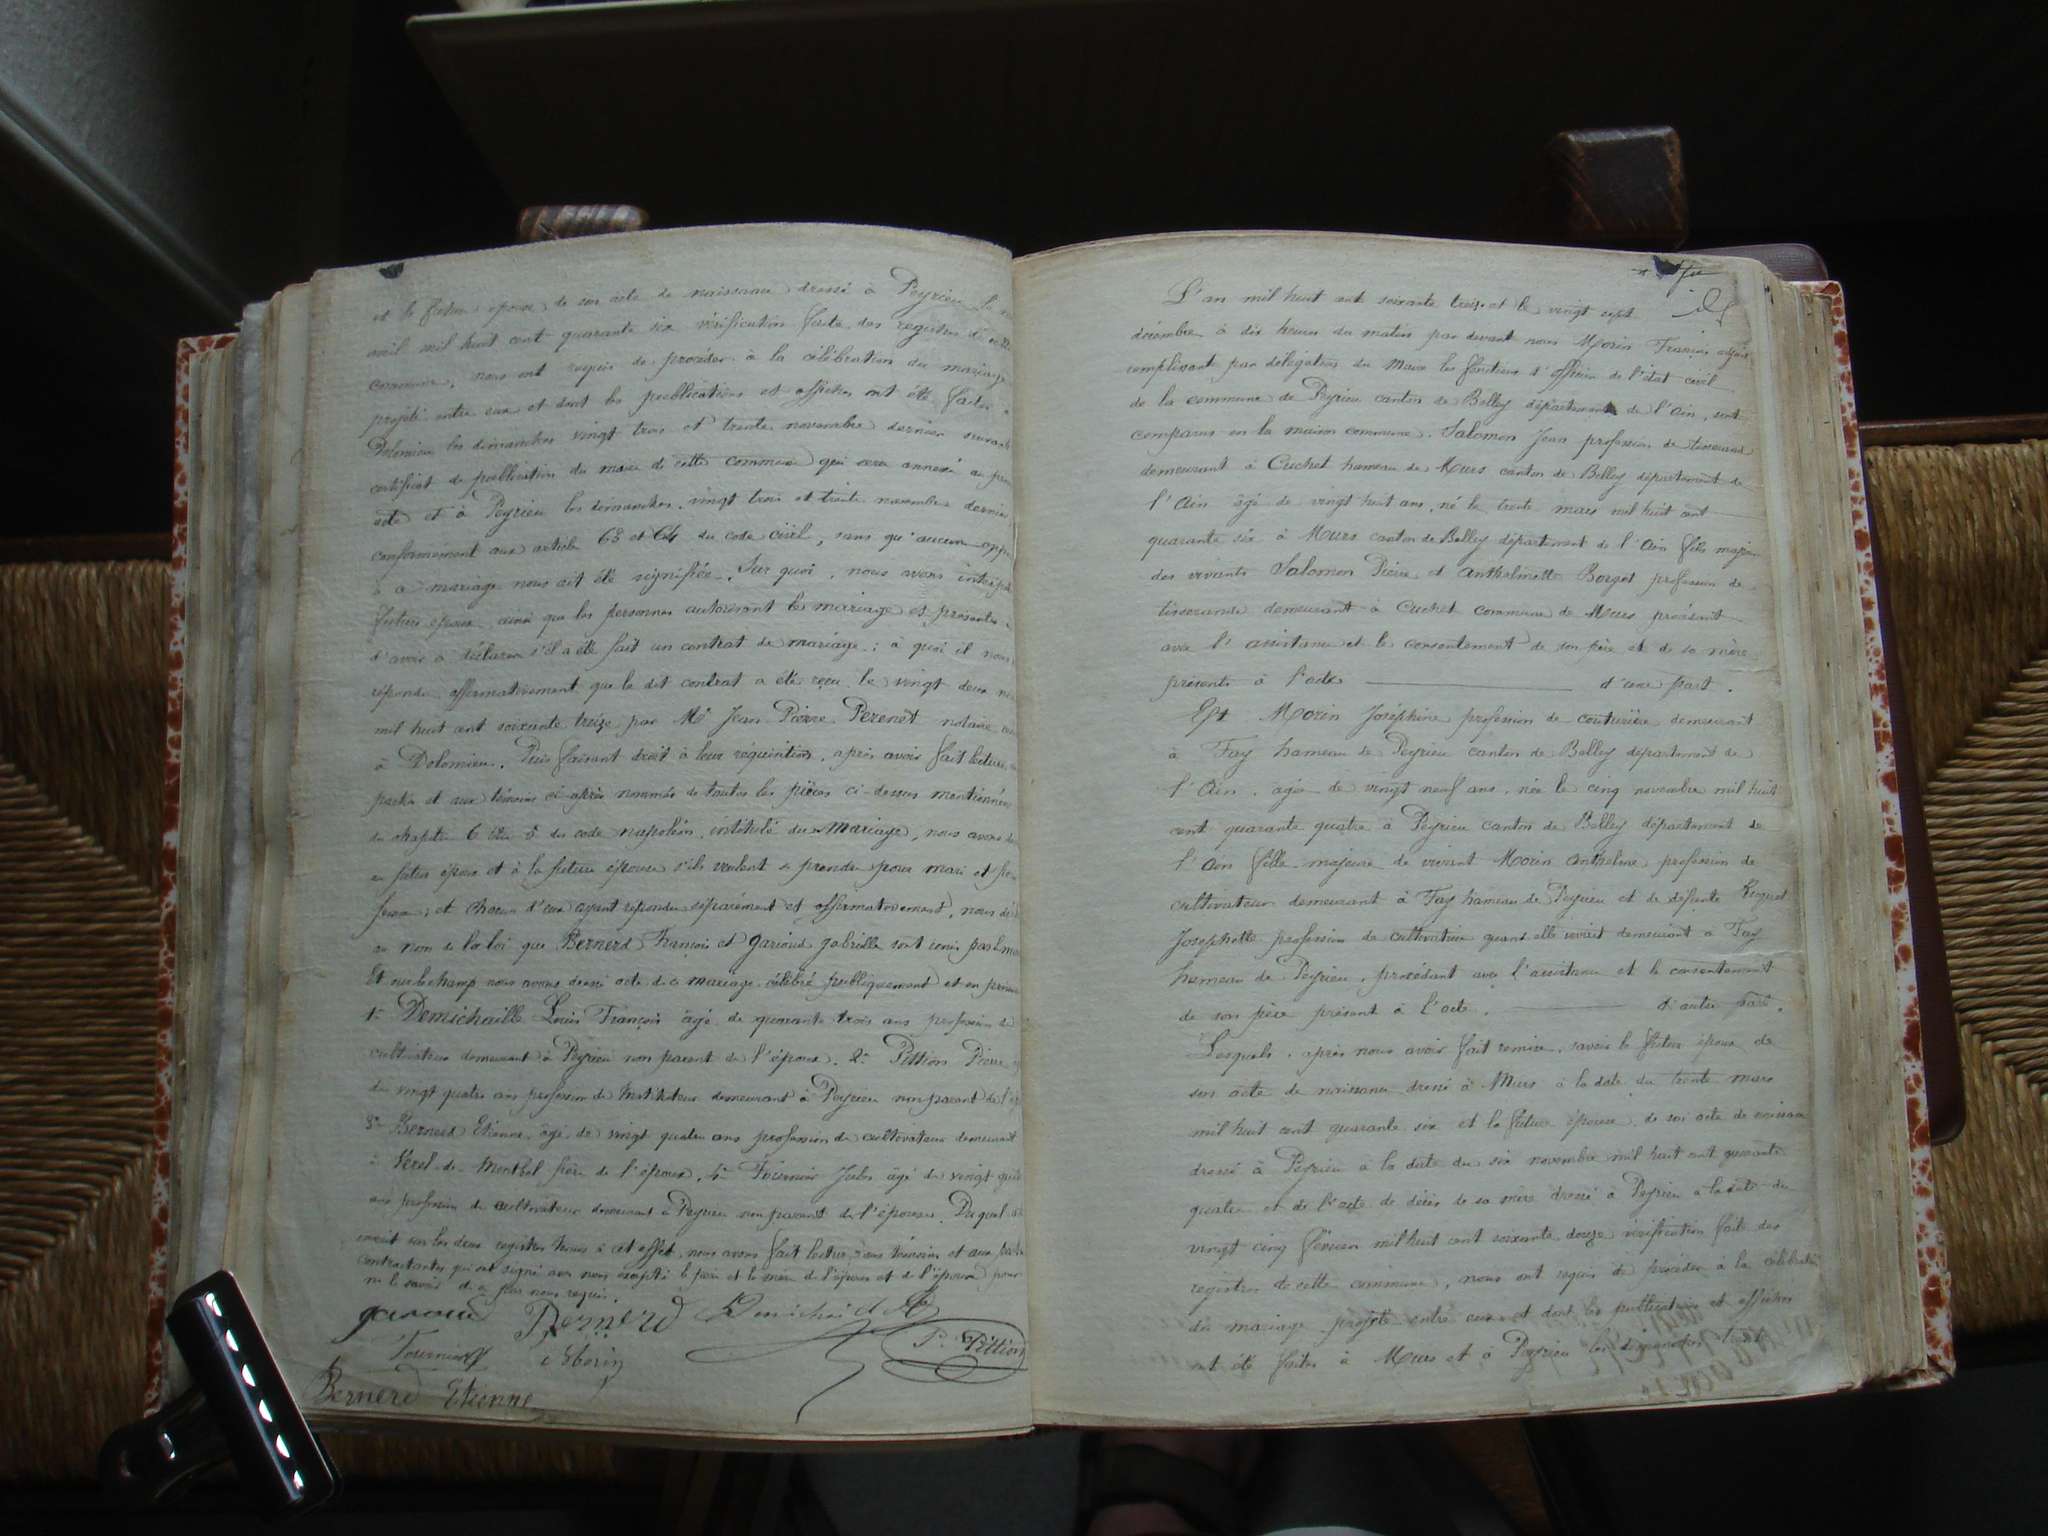 et la future épouse de son acte de naissance dressé à Peyrieu le
avril mil huit cent quarante six vérification faite des registres de cette
commune, nous ont requis de procéder à la célébration du mariage
projeté entre eux et dont les publications et affiches ont été faites à
Dolomieu les dimanches vingt trois et trente novembre dernier suivant
certificat de publication du maire de cette commune qui sera annexé au
acte et à Peyrieu les dimanches vingt trois et trente novembre dernier,
conformément aux article 63 et 64 du code civil, sans qu'aucune
à ce mariage nous ait été signifiée. Sur quoi, nous avons interpelé
futurs époux, ainsi que les personnes autorisant le mariage et présentes
d'avoir à déclarer s'il a été fait un contrat de mariage; à quoi il nous
répondu affirmativement que le dit contrat a été reçu le vingt deux
mil huit cent soixante treize par Me Jean Pierre Perenet notaire
à Dolomieu. Puis faisant droit à leur réquisition, après avoir fait lecture
parties et aux témoins ci-après nommés de toutes les pièces ci-dessus mentionnées
du chapitre 6 titre 5 du code napoléon, intitulé du Mariage, nous avons
au futur époux et à la future épouse s'ils veulent se prendre pour mari et pour
femme; et chacun d'eux ayant répondu séparément et affirmativement, nous
au nom de la loi que Bernerd François et garioud gabrielle sont unis par le
Et sur le champ nous avons dressé acte de ce mariage célébré publiquement et en
1° Demichaille Louis François âgé de quarante trois ans profession de
cultivateur demeurant à Peyrieu non parent de l'époux. 2° Pittion Pierre
de vingt quatre ans profession de Instituteur demeurant à Peyrieu non parent de
3° Bernerd Etienne, âgé de vingt quatre ans profession de cultivateur demeurant
à Verel-de-Montbel frère de l'époux, 4° Fournier Jules âgé de vingt
ans profession de cultivateur demeurant à Peyrieu non parent de l'épouse. Du quel
inscrit sur les deux registres tenus à cet effet, nous avons fait lecture aux témoins et aux
contractantes qui ont signé avec nous excepté le père et la mère de l'époux et de l'épouse pour
ne le savoir de ce par nous requis.
garioud Bernerd
Fournier Morin P. Pittion
Bernerd Etienne
L'an mil huit cent soixante treize et le vingt sept
décembre à dix heures du matin par devant nous Morin François adjoint
remplissant par délégation du Maire les fonctions d'officier de l'état civil
de la commune de Peyrieu canton de Belley département de l'Ain, sont
comparus en la maison commune, Salomon Jean profession de tisserand
demeurant à Cuchet hameau de Murs canton de Belley département de
l'Ain âgé de vingt huit ans, né le trente mars mil huit cent
quarante six à Murs canton de Belley département de l'Ain fils majeur
des vivants Salomon Pierre et Anthelmette Borget profession de
tisserands demeurant à Cuchet commune de Murs procédant
avec l'assistance et le consentement de son père et de sa mère
présents à l'acte d'une part.
Et Morin Joséphine profession de couturière demeurant
à Fay hameau de Peyrieu canton de Belley département de
l'Ain, agée de vingt neuf ans, née le cinq novembre mil huit
cent quarante quatre à Peyrieu canton de Belley département de
l'Ain fille majeure de vivant Morin Anthelme profession de
cultivateur demeurant à Fay hameau de Peyrieu et de défunte
Josephette profession de cultivatrice quand elle vivait demeurant à Fay
hameau de Peyrieu, procédant avec l'assistance et le consentement
de son père présent à l'acte. d'autre part.
Lesquels, après nous avoir fait remise, savoir le futur époux de
son acte de naissance dressé à Murs à la date du trente mars
mil huit cent quarante six et la future épouse, de son acte de naissance
dressé à Peyrieu à la date du six novembre mil huit cent quarante
quatre et de l'acte de décès de sa mère dressé à Peyrieu à la date du
vingt cinq février mil huit cent soixante douze vérification faite des
registres de cette commune, nous ont requis de procéder à la célébration
du mariage projeté entre eux et dont les publications et affiches
ont été faites à Murs et à Peyrieu les dimanches